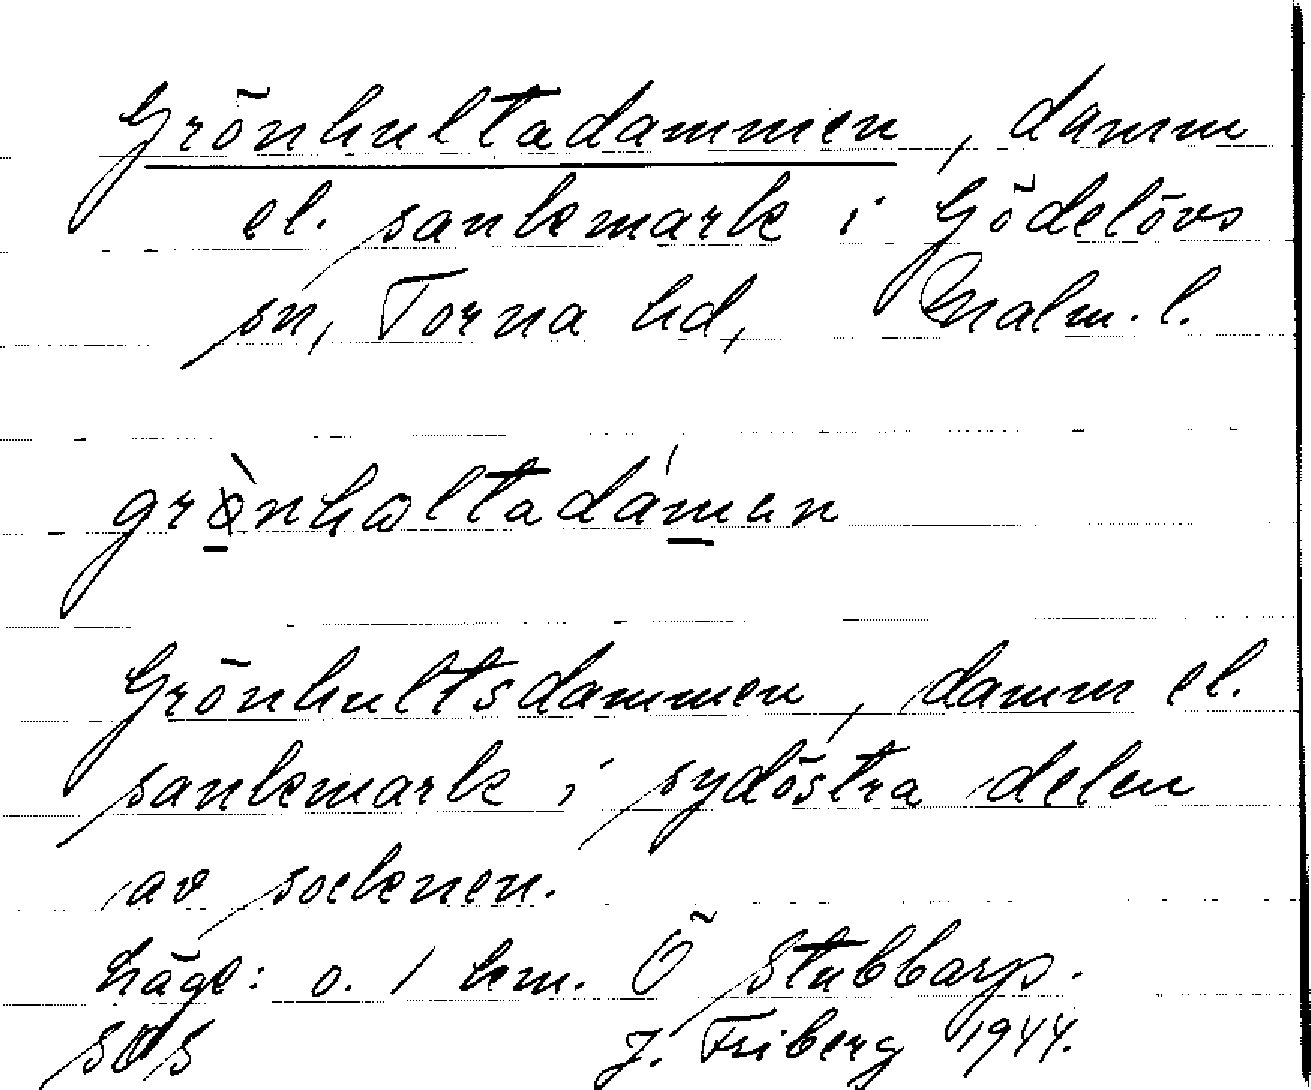 Grönhultadammen, damm
el. sankmark i Gödelövs
sn, Torna hd, Malm. l.
grònhωltadámen
Grönhultsdammen, damm el.
sankmark i sydöstra delen
av socknen.
Läge: o. 1 km. Ö Stubbarp.
SOS J. Friberg 1944.